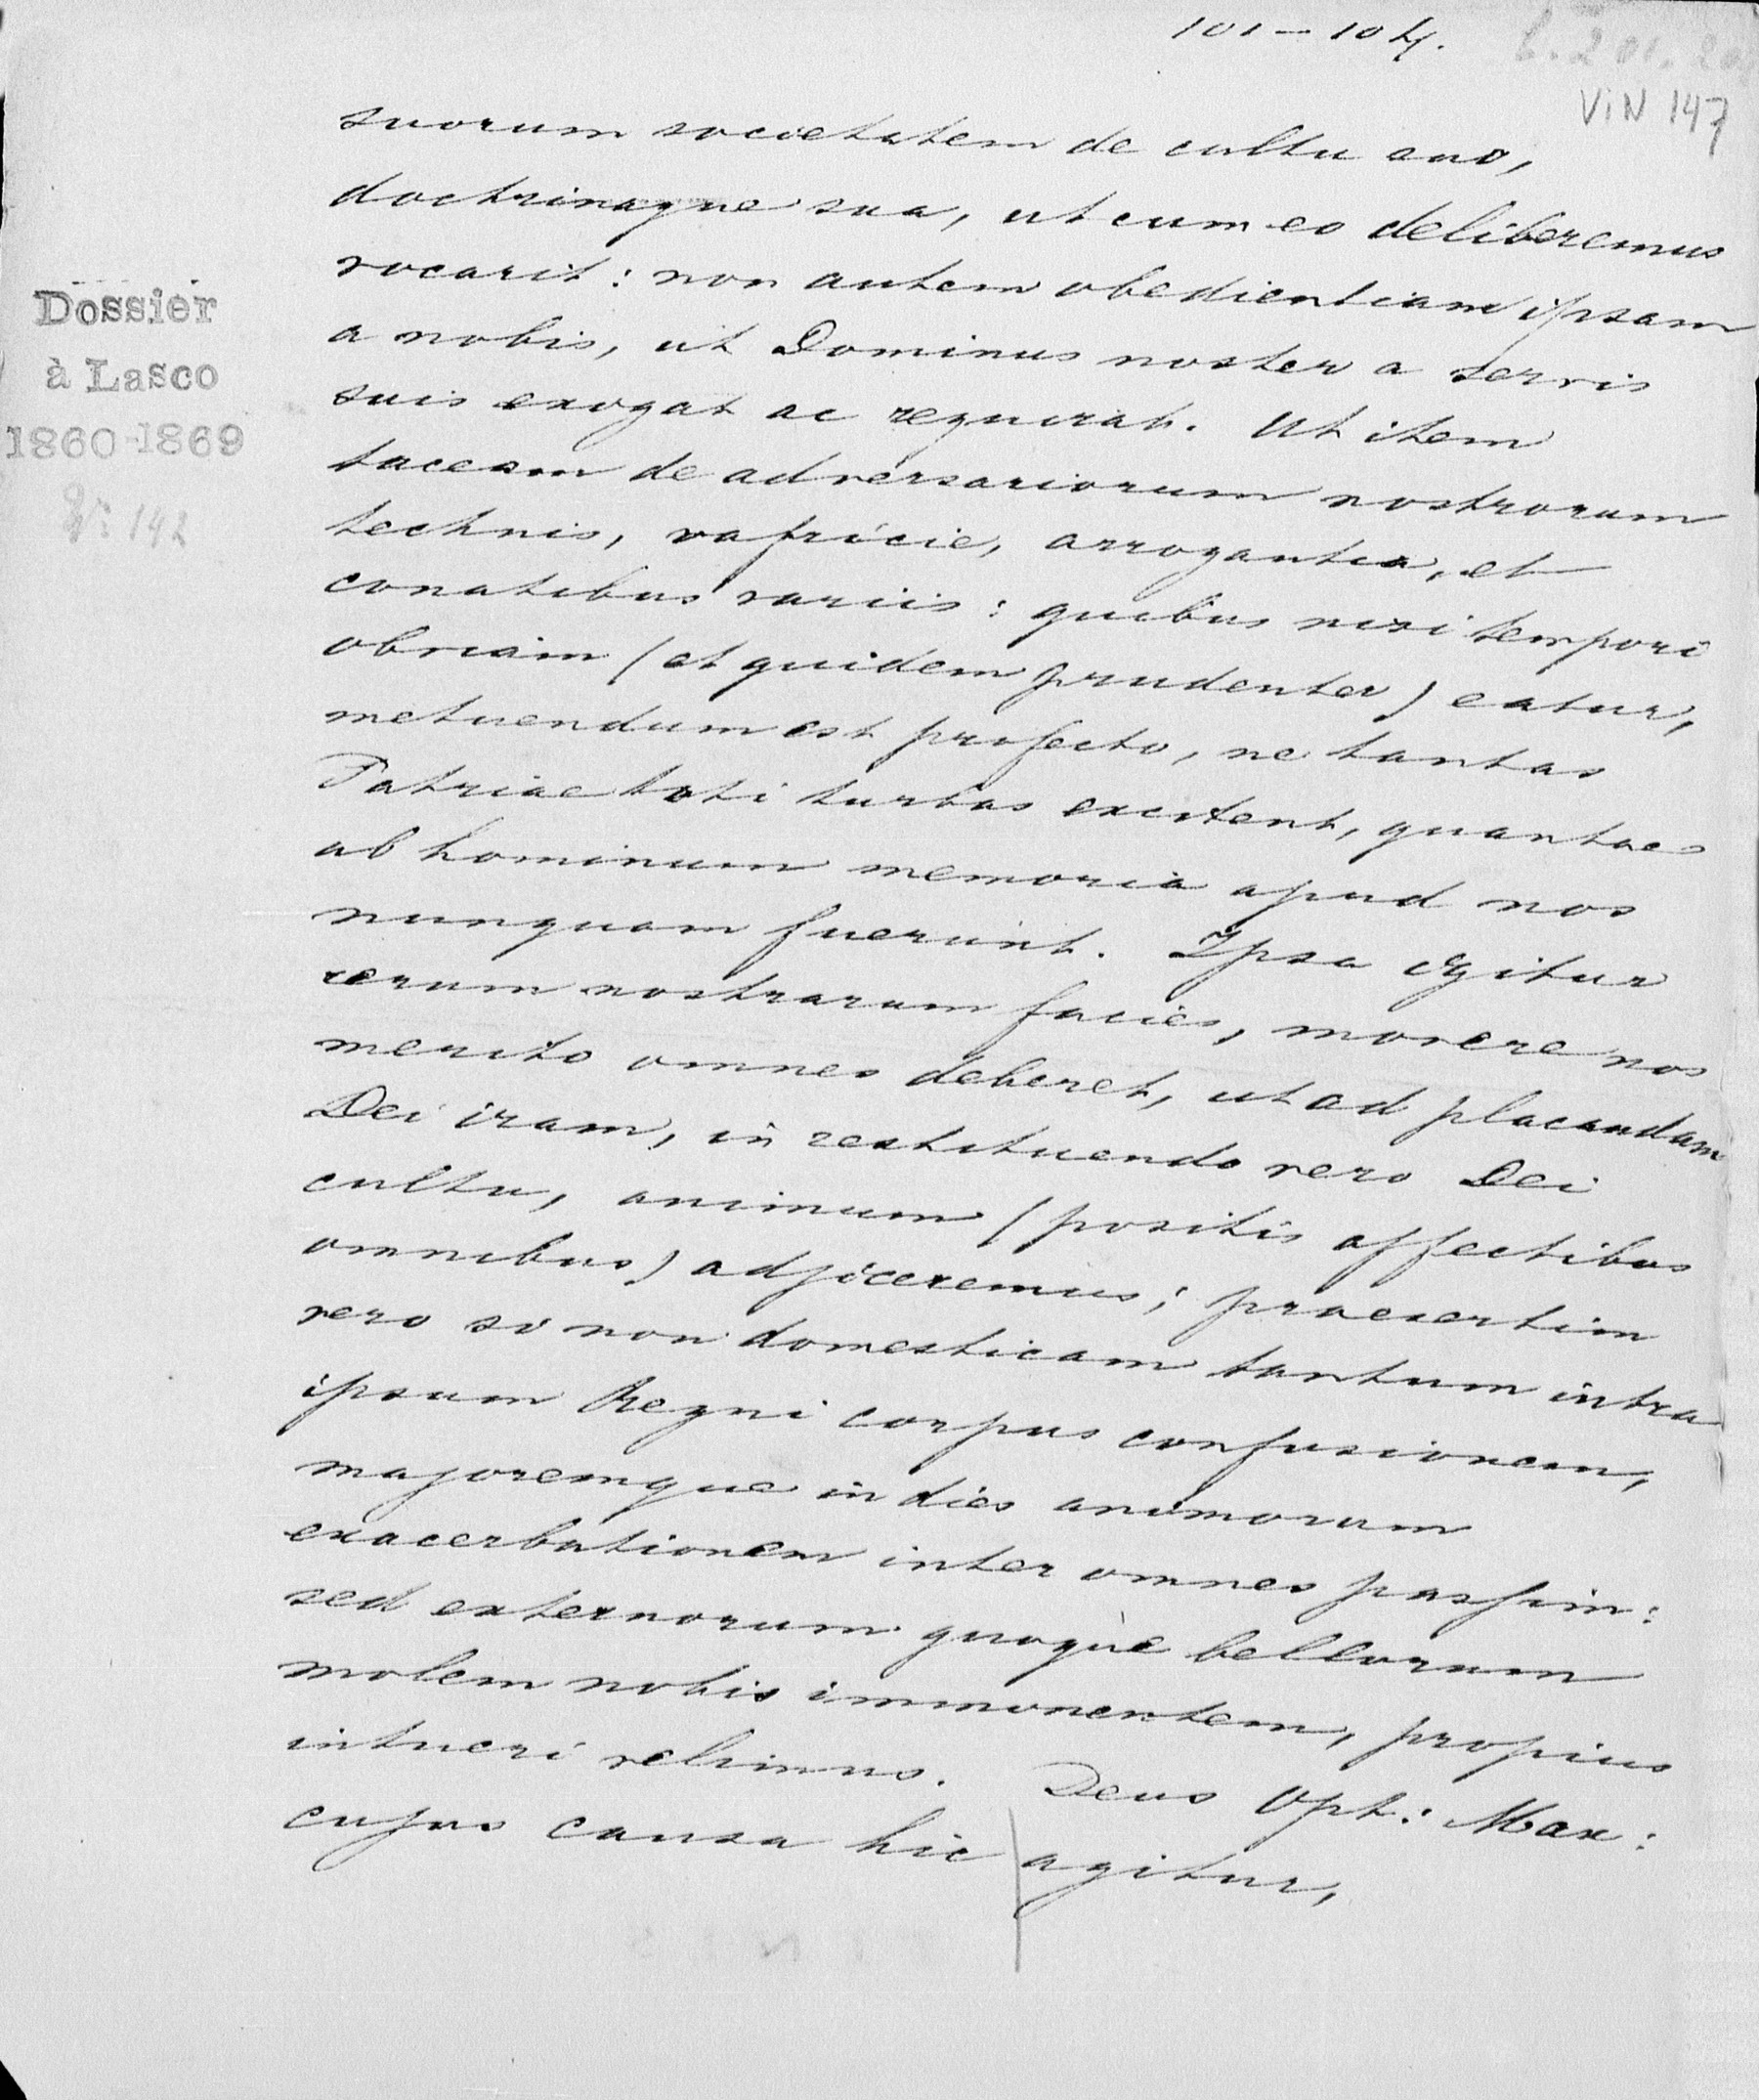 101–104.
b. 201. 20
VIN 147
suorum societatem de cultu suo,
doctrinaque sua, ut cum eo deliberemus
vocarit: non autem obedientiam ipsam
a nobis, ut Dominus noster a servis
suis exogat ac requirat. Ut item
taceam de adversariorum nostrorum
technis, vafricie, arrogantia, et
conatibus variis: quibus nisi tempori
obviam (et quidem prudenter) eatur,
metuendum est profecto, ne tantas
Patriae toti turbas excitent, quantae
ab hominum memoria apud nos
nunquam fuerint. Ipsa igitur
rerum nostrarum facies, movere nos
merito omnes deberet, ut ad placandam
Dei iram, in restituendo vero Dei
cultu, animum (positis affectibus
omnibus) adjiceremus; praesertim
vero si non domesticam tantum intra
ipsum Regni corpus confusionem,
majoremque in dies animorum
exacerbationem inter omnes passim:
sed externorum quoque bellorum
molem nobis immonentem, propius
intueri velimus. Deus Opt: Max:
cujus causa hic agitur,
Dossier
à Lasco
1860-1869
142